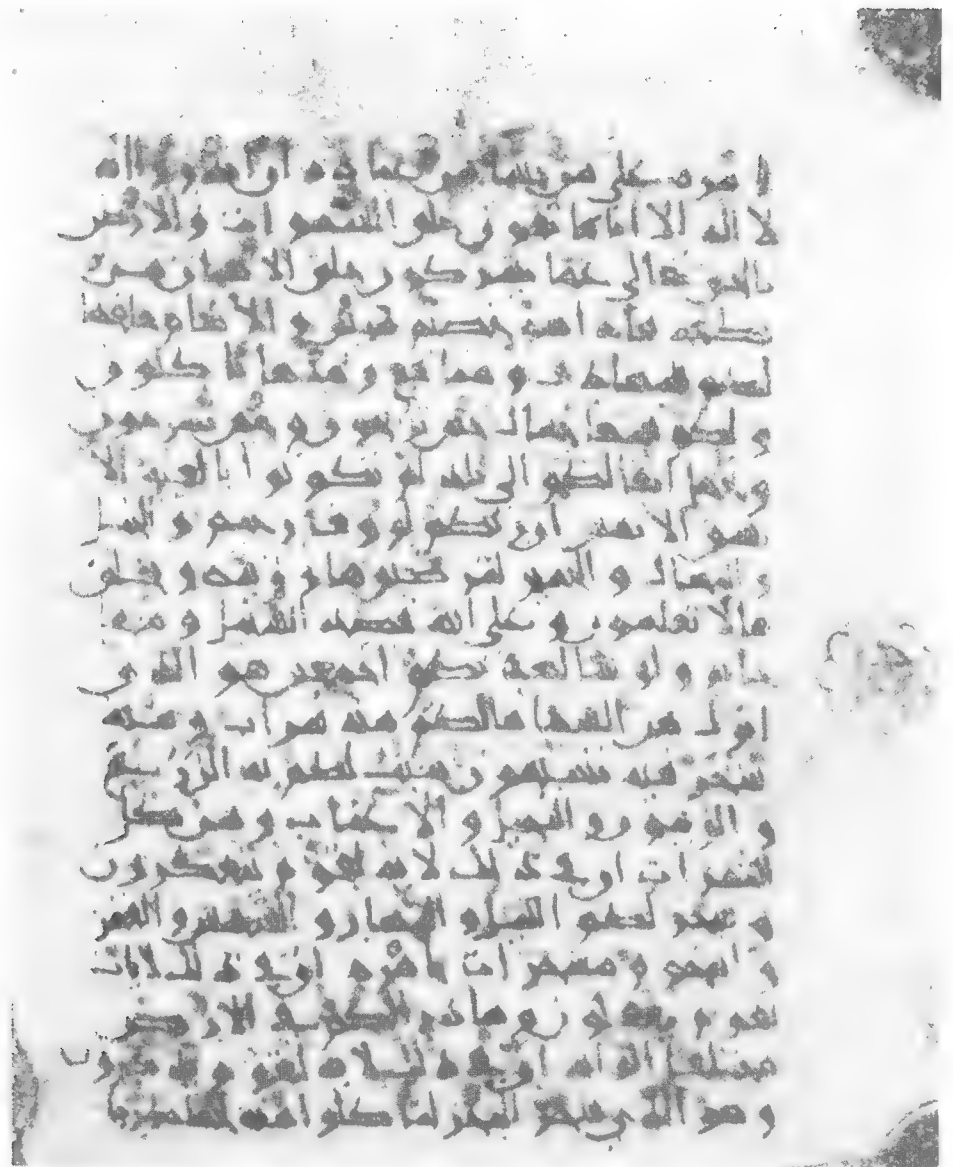 امره على من يشا من عباده ان انذروا انه
لا اله الا انا فاتقون خلق السموات والارض
بالحق تعالى عما يشركون خلق الانسان من
نطفه فاذا هو خصيم مبين والانعام خلقها
لكم فيها دف ومنافع ومنها تاكلون
ولكم فيها جمال حين تريحون وحين تسرحون
وتحمل اثقالكم الى بلد لم تكونوا بالغيه الا
بشق الانفس ان ربكم لروف رحيم والخيل
والبغال والحمير لتركبوها وزينه ويخلق
ما لا تعلمون وعلى الله قصد السبيل ومنها
جاير ولو شا لهديكم اجمعين هو الذي
انزل من السما ما لكم منه شراب ومنه
شجر فيه تسيمون ينبت لكم به الزرع
والزيتون والنخيل والاعناب ومن كل
الثمرات ان في ذلك لايه لقوم يتفكرون
وسخر لكم الليل والنهار والشمس والقمر
والنجوم مسخرات بامره ان في ذلك لايات
لقوم يعقلون وما ذرا لكم في الارض
مختلفا الوانه ان في ذلك لايه لقوم يذكرون
وهو الذي سخر البحر لتاكلوا منه لحما طريا